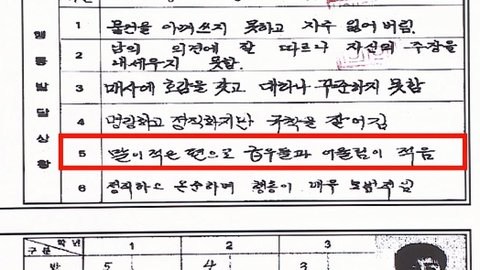 행동발달상황
1 물건을 아껴쓰지 못하고 자주 잃어버림.
2 남의 의견에 잘 따르나 자신의 주장을
내세우지 못함.
3 매사에 호감을 갖고 대하나 꾸준하지 못함
4 명랑하고 정직하지만 규칙을 잘 어김
5 말이 적은 편으로 급우들과 어울림이 적음
6 정직하고 온순하며 행동이 매우 모범적임
학년 구분 1 2 3
5 4 3